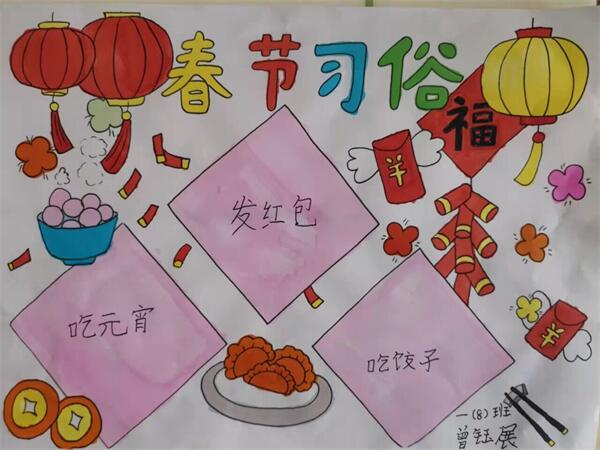 春节习俗
福
发红包
吃元宵
吃饺子
一(8)班
曾钰展